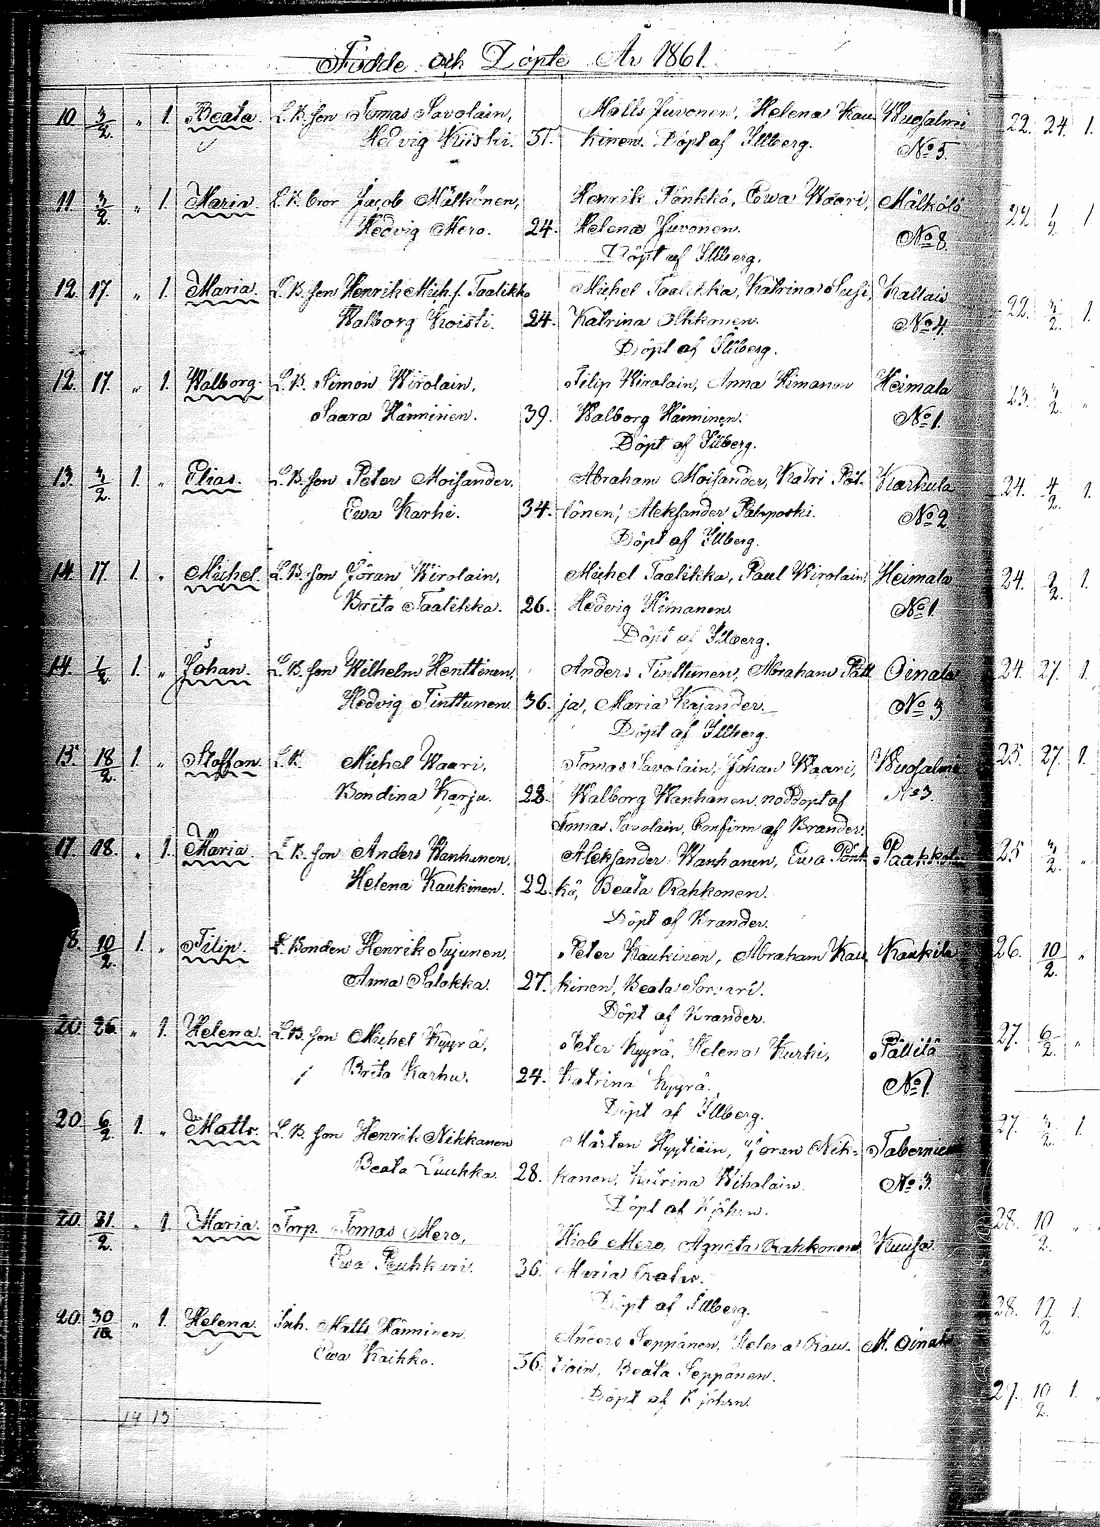 Födde och Döpte År 1861.
10. 3/2. " 1. Beata. L. B. son Tomas Savolain, Matts Juvonen, Helena Kau Wuosalmi
Hedvig Kiiski. 31. kinen. Döpt af Illberg. No 5.
11. 3/2. " 1. Maria. L. B. bror Jacob Mälkönen, Henrik Pönkkö, Ewa Waari, Mälkölä
Hedvig Mero. 24. Helena Juvonen. No 8.
Döpt af Illberg.
12. 17. " 1. Maria. L. B. son Henrik Mich. s. Taalikka Michel Taalikka, Katrina Susi, Kallais
Walborg Koisti. 24. Katrina Ihkonen. No 4.
Döpt af Illberg.
12. 17. " 1. Walborg. L. B. Simon Wirolain, Filip Wirolain, Anna Himanen Heimala
Saara Hänninen. 39. Walborg Hänninen. No 1.
Döpt af Illberg.
13. 3/2. 1. " Elias. L. B. son Peter Moisander. Abraham Moisander, Katri Pöl- Karhula
Ewa Karhi. 34. lönen, Aleksander No 2
Döpt af Illberg.
14. 17. 1. " Michel. L. B. son Jöran Wirolain, Michel Taalikka, Paul Wirolain, Heimala
Brita Taalikka. 26. Hedvig Himanen. No 1.
Döpt af Illberg.
14. 1/2. 1. " Johan. L. B. son Wilhelm Henttinen, Anders Tinttunen, Abraham Oinala
Hedvig Tinttunen. 36. ja, Maria Kajander. No 3.
Döpt af Illberg.
15. 18/2. 1. " Staffan. L. B. Michel Waari, Tomas Savolain, Johan Waari, Wuosalmi
Bondina Karju. 28. Walborg Wanhanen, nöddöpt af No 3.
Tomas Savolain, Confirm af Brander.
17. 18. " 1. Maria. L. B. son Anders Wanhanen, Aleksander Wanhanen, Ewa Pönk Paakkola
Helena Kaukinen. 22. kö, Beata Rahkonen.
Döpt af Krander.
18. 10/2. 1. " Filip. L. Bonden Henrik Tujunen. Peter Kaukinen, Abraham Kau Kaukila
Anna Palokka. 27. kinen, Beata
Döpt af Krander.
20. 26. " 1. Helena. L. B. son Michel Kyyrä, Peter Kyyrä, Helena Kurki, Pällilä
Brita Karhu. 24. Katrina Kyyrä. No 1.
Döpt af Illberg.
20. 6/2. 1. " Matts. L. B. son Henrik Nikkanen Mårten Hyytiäin, Jöran Nik- Tabernie
Beata Luukka. 28. kanen, Katrina Wiholain. No 3.
Döpt af Kjöhn.
20. 31/2. " 1. Maria. Torp. Tomas Mero, Hiob Mero, Agneta Rahkonen, Kuusa.
Ewa Puhkuri. 36. Maria
Döpt af Illberg.
20. 30/12. " 1. Helena. Inh. Matts Hänninen. Anders Seppänen, Helena Kau- M. Oinala
Ewa Kaikko. 36. Beata Seppänen.
Döpt af
14 13
22. 24. 1.
22. 1/2. 1
22. 3/2. 1.
23. 3/2. "
24. 4/2. 1.
24. 2/2. 1.
24. 27. 1.
25. 27. 1.
25 3/2. "
26. 10/2. "
27. 6/2. "
27. 3/2. 1.
28. 10/2. "
28. 17/2. 1.
27. 10/2. 1.